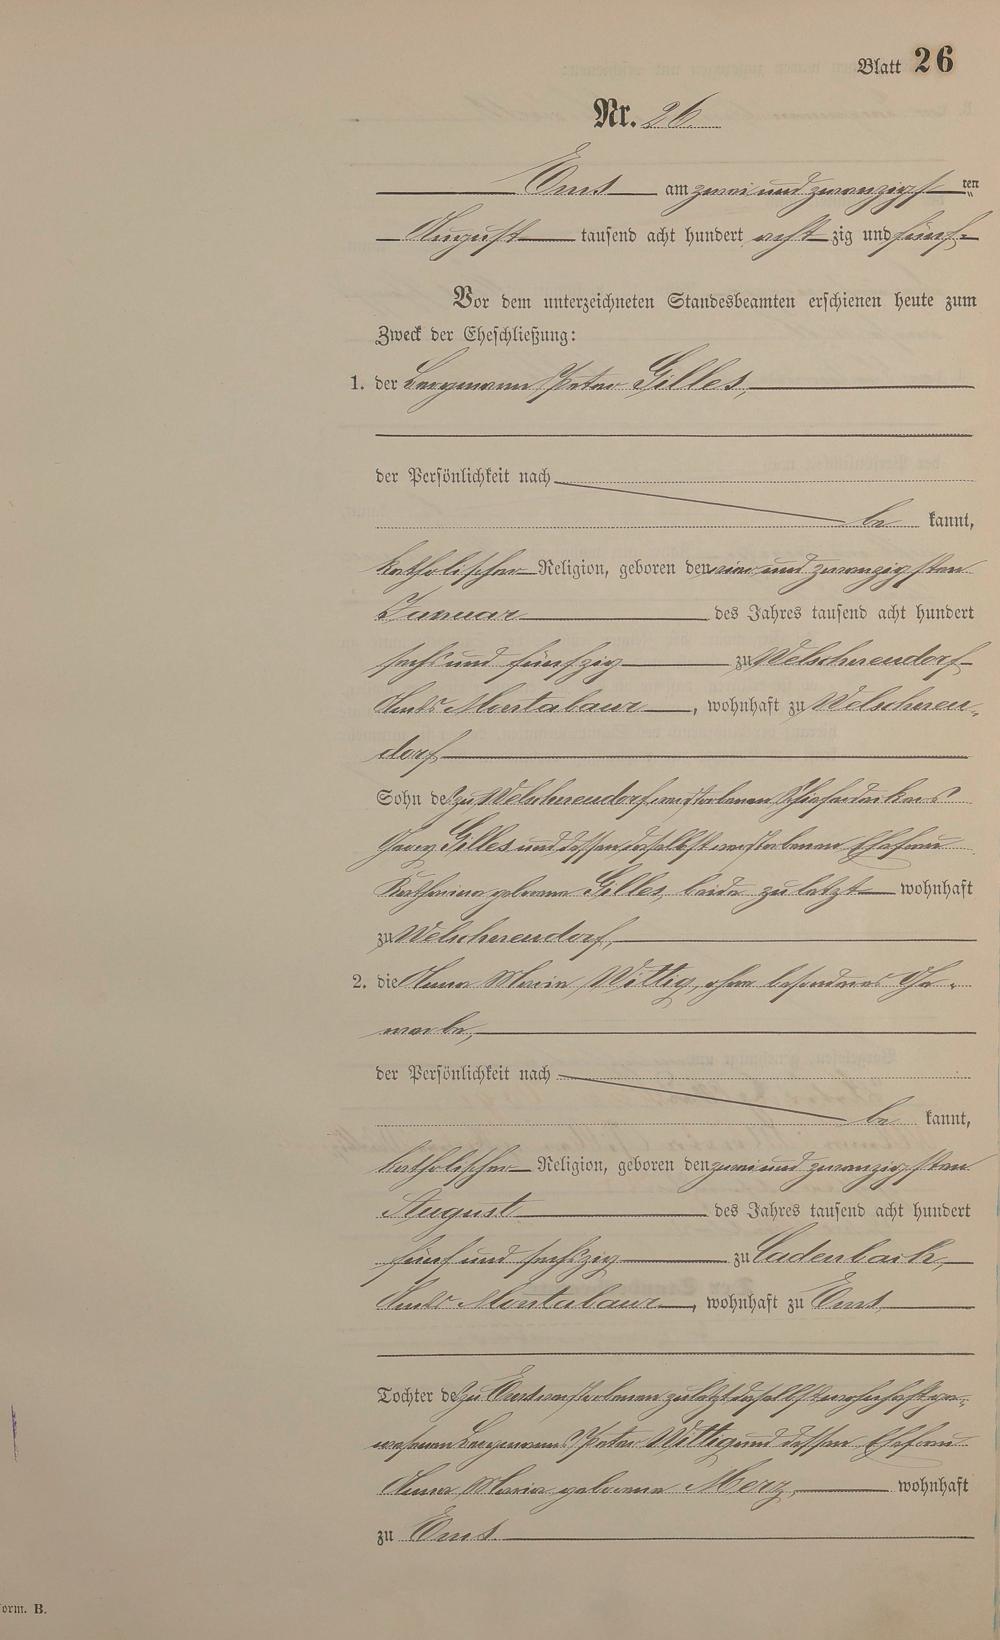 Blatt 26
Nr. 26.
Ems am zwei und zwanzigsten
August tausend acht hundert acht zig und fünf
Vor dem unterzeichneten Standesbeamten erschienen heute zum
Zweck der Eheschließung:
1. der Bergmann Peter Gilles,
der Persönlichkeit nach
be kannt,
katholischer Religion, geboren den und zwanzigsten
Januar des Jahres tausend acht hundert
sechs und fünfzig zu Welschneudorf
Amts Montabaur, wohnhaft zu Welschneu-
dorf
Sohn des zu Welschneudorf verstorbenen Schieferdeckers
Georg Gilles und dessen daselbst verstorbenen Ehefrau
Katharina geborene Gilles, beide zuletzt wohnhaft
zu Welschneudorf,
2. die Anna Maria Wittig, ohne besonderes Ge-
werbe,
der Persönlichkeit nach
be kannt,
katholischer Religion, geboren den zwei und zwanzigsten
August des Jahres tausend acht hundert
fünf und sechszig zu Cadenbach,
Amts Montabaur, wohnhaft zu Ems
Tochter des zu Ems verstorbenen zuletzt daselbst wohnhaft ge-
wesenen Bergmanns Peter Wittig und dessen Ehefrau
Anna Maria geborene Merz, wohnhaft
zu Ems.
orm. B.